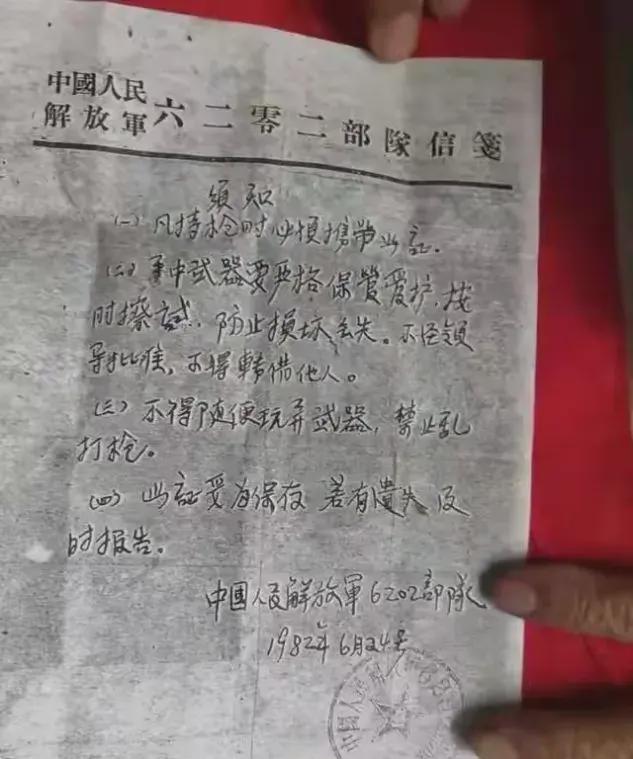 中國人民
解放軍六二零二部隊信箋
須知
(一)凡持枪时必須携带此証。
(二)手中武器要严格保管爱护,按
时擦試,防止損坏丢失。不经領
导批准,不得轉借他人。
(三)不得随便玩弄武器,禁止乱
打枪。
(四)此証要 保存 若有遺失及
时报告。
中國人民解放軍6202部隊
1982年6月24号
中國人民解